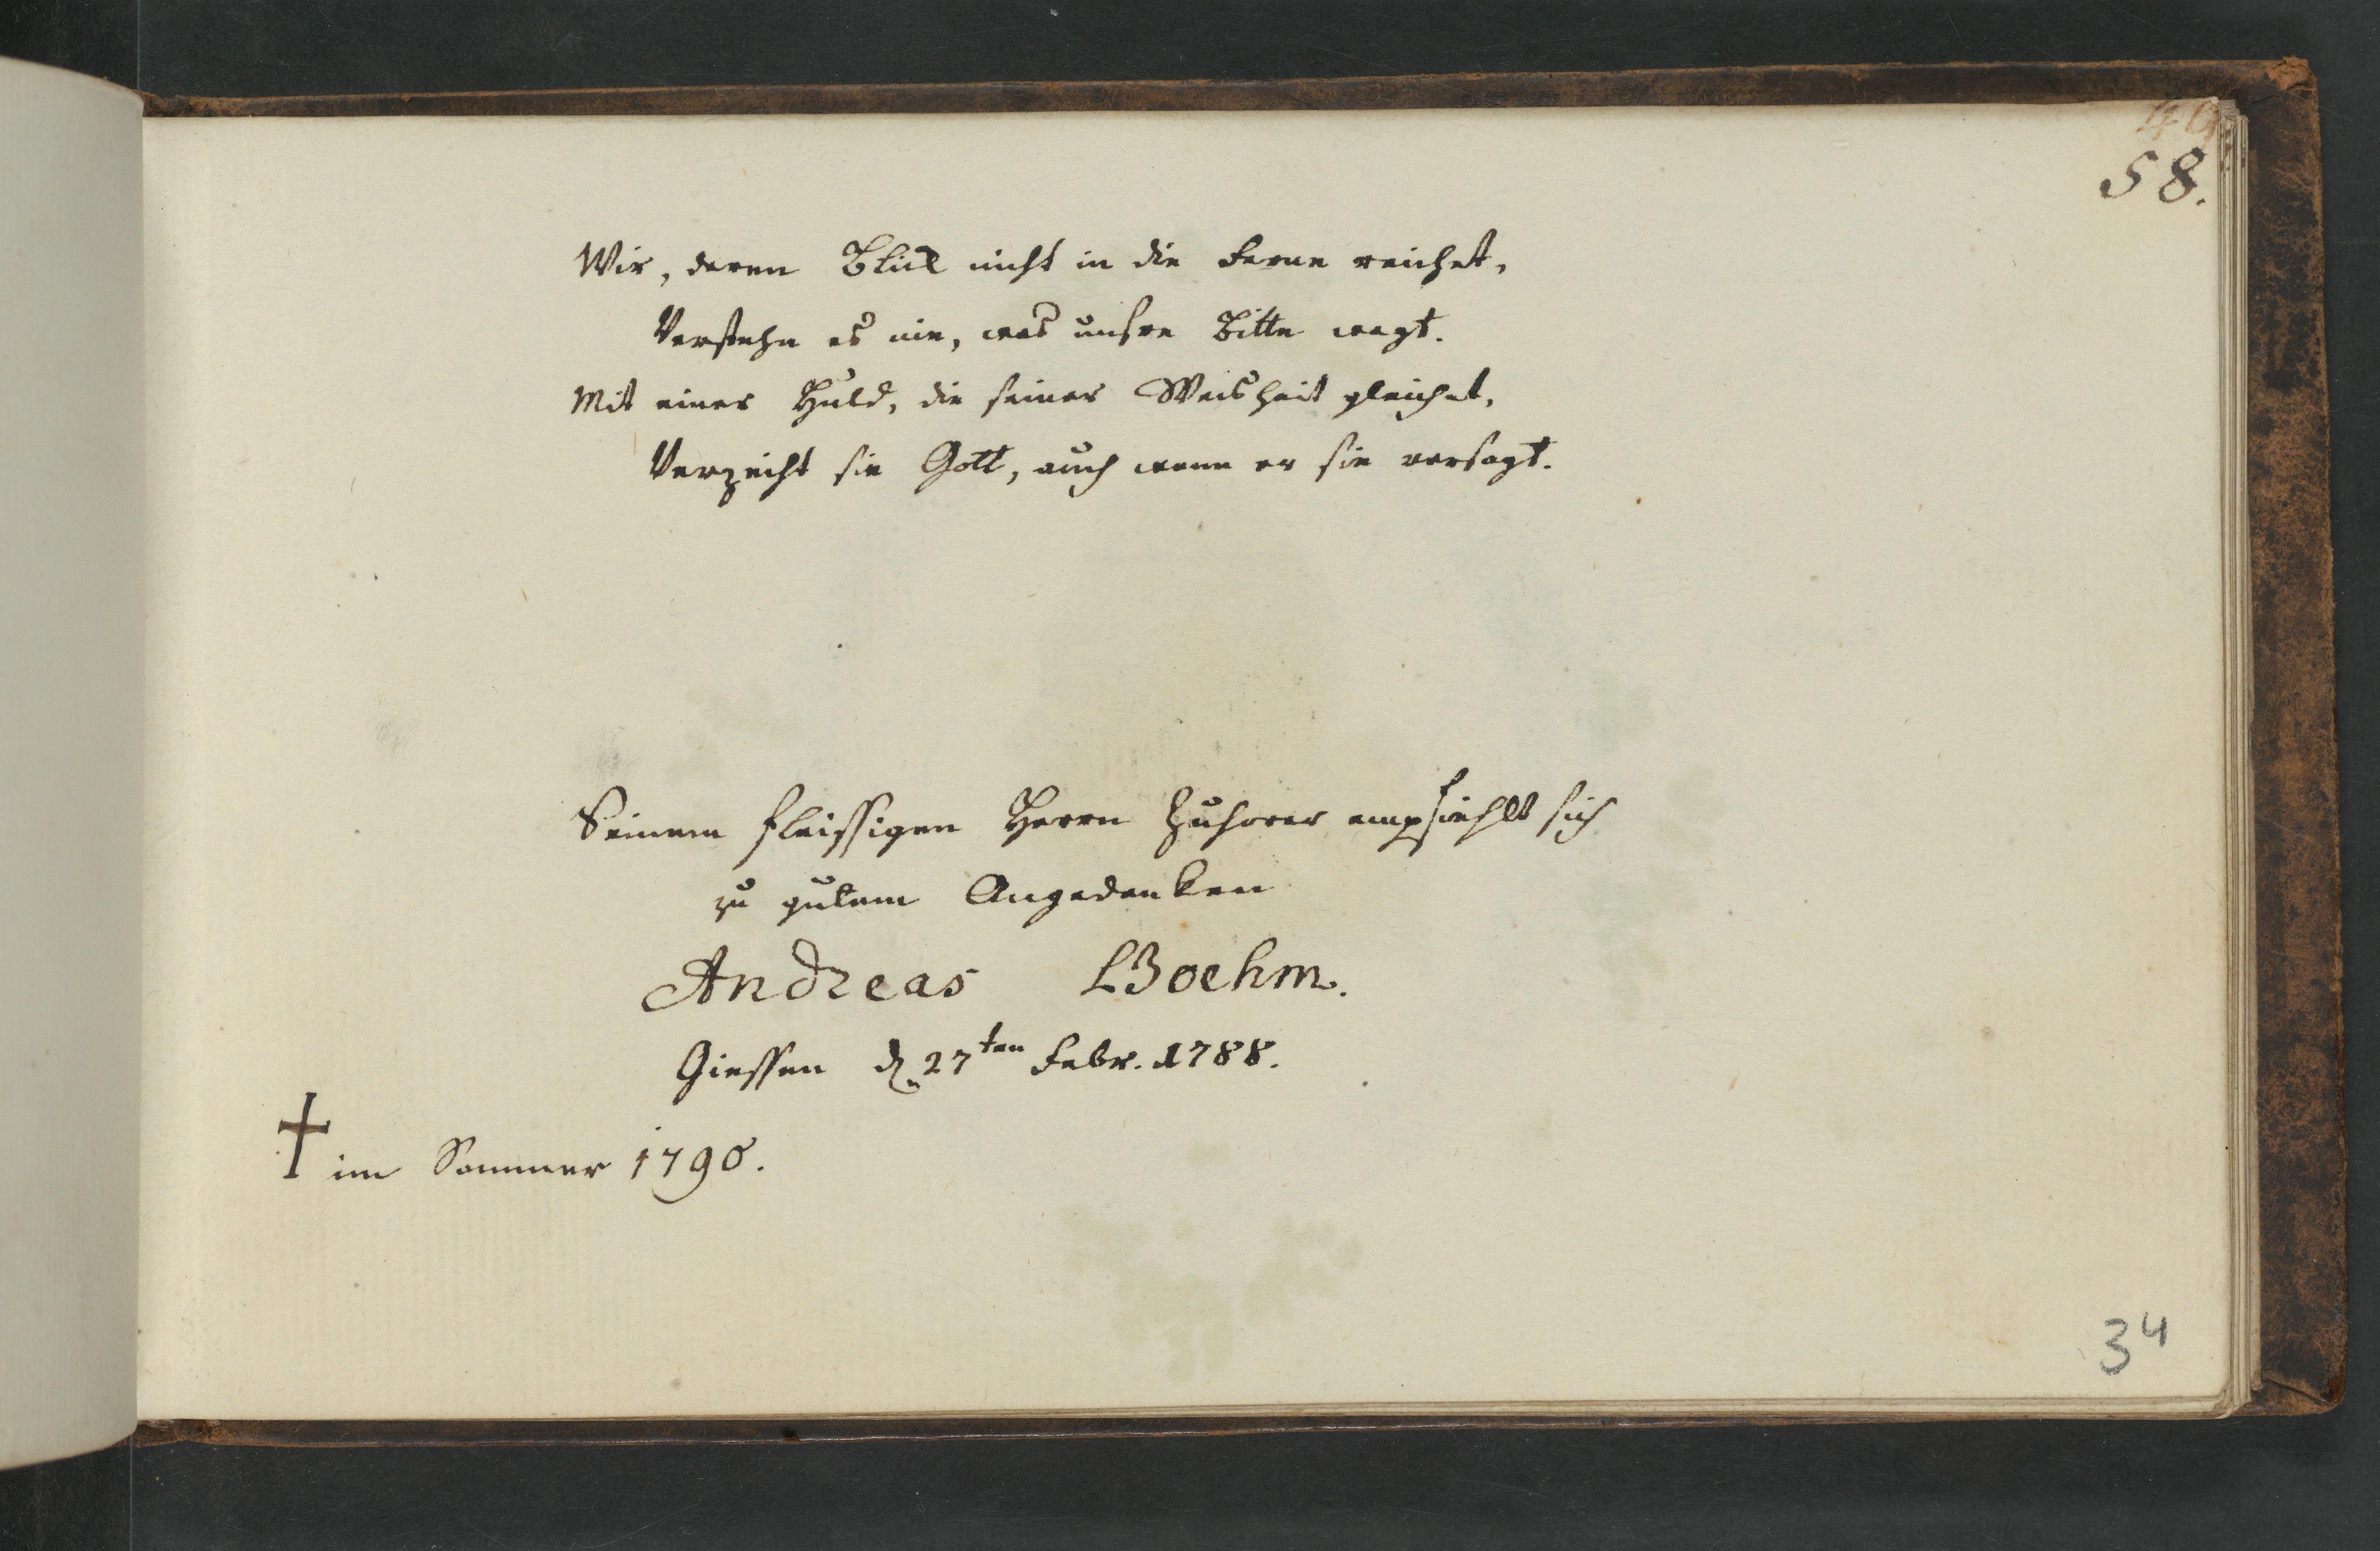 58.
Wir, deren Blick nicht in die Ferne reichet,
Verstehn es nie, was unsre Bitte wagt.
Mit einer Huld, die seiner Weisheit gleichet,
Verzeiht sie Gott, auch wenn er sie versagt.
Seinem fleissigen Herrn Zuhörer empfiehlt sich
zu gutem Angedenken
Andreas Boehm.
Giessen d. 27ten Febr. 1788.
† im Sommer 1790.
34